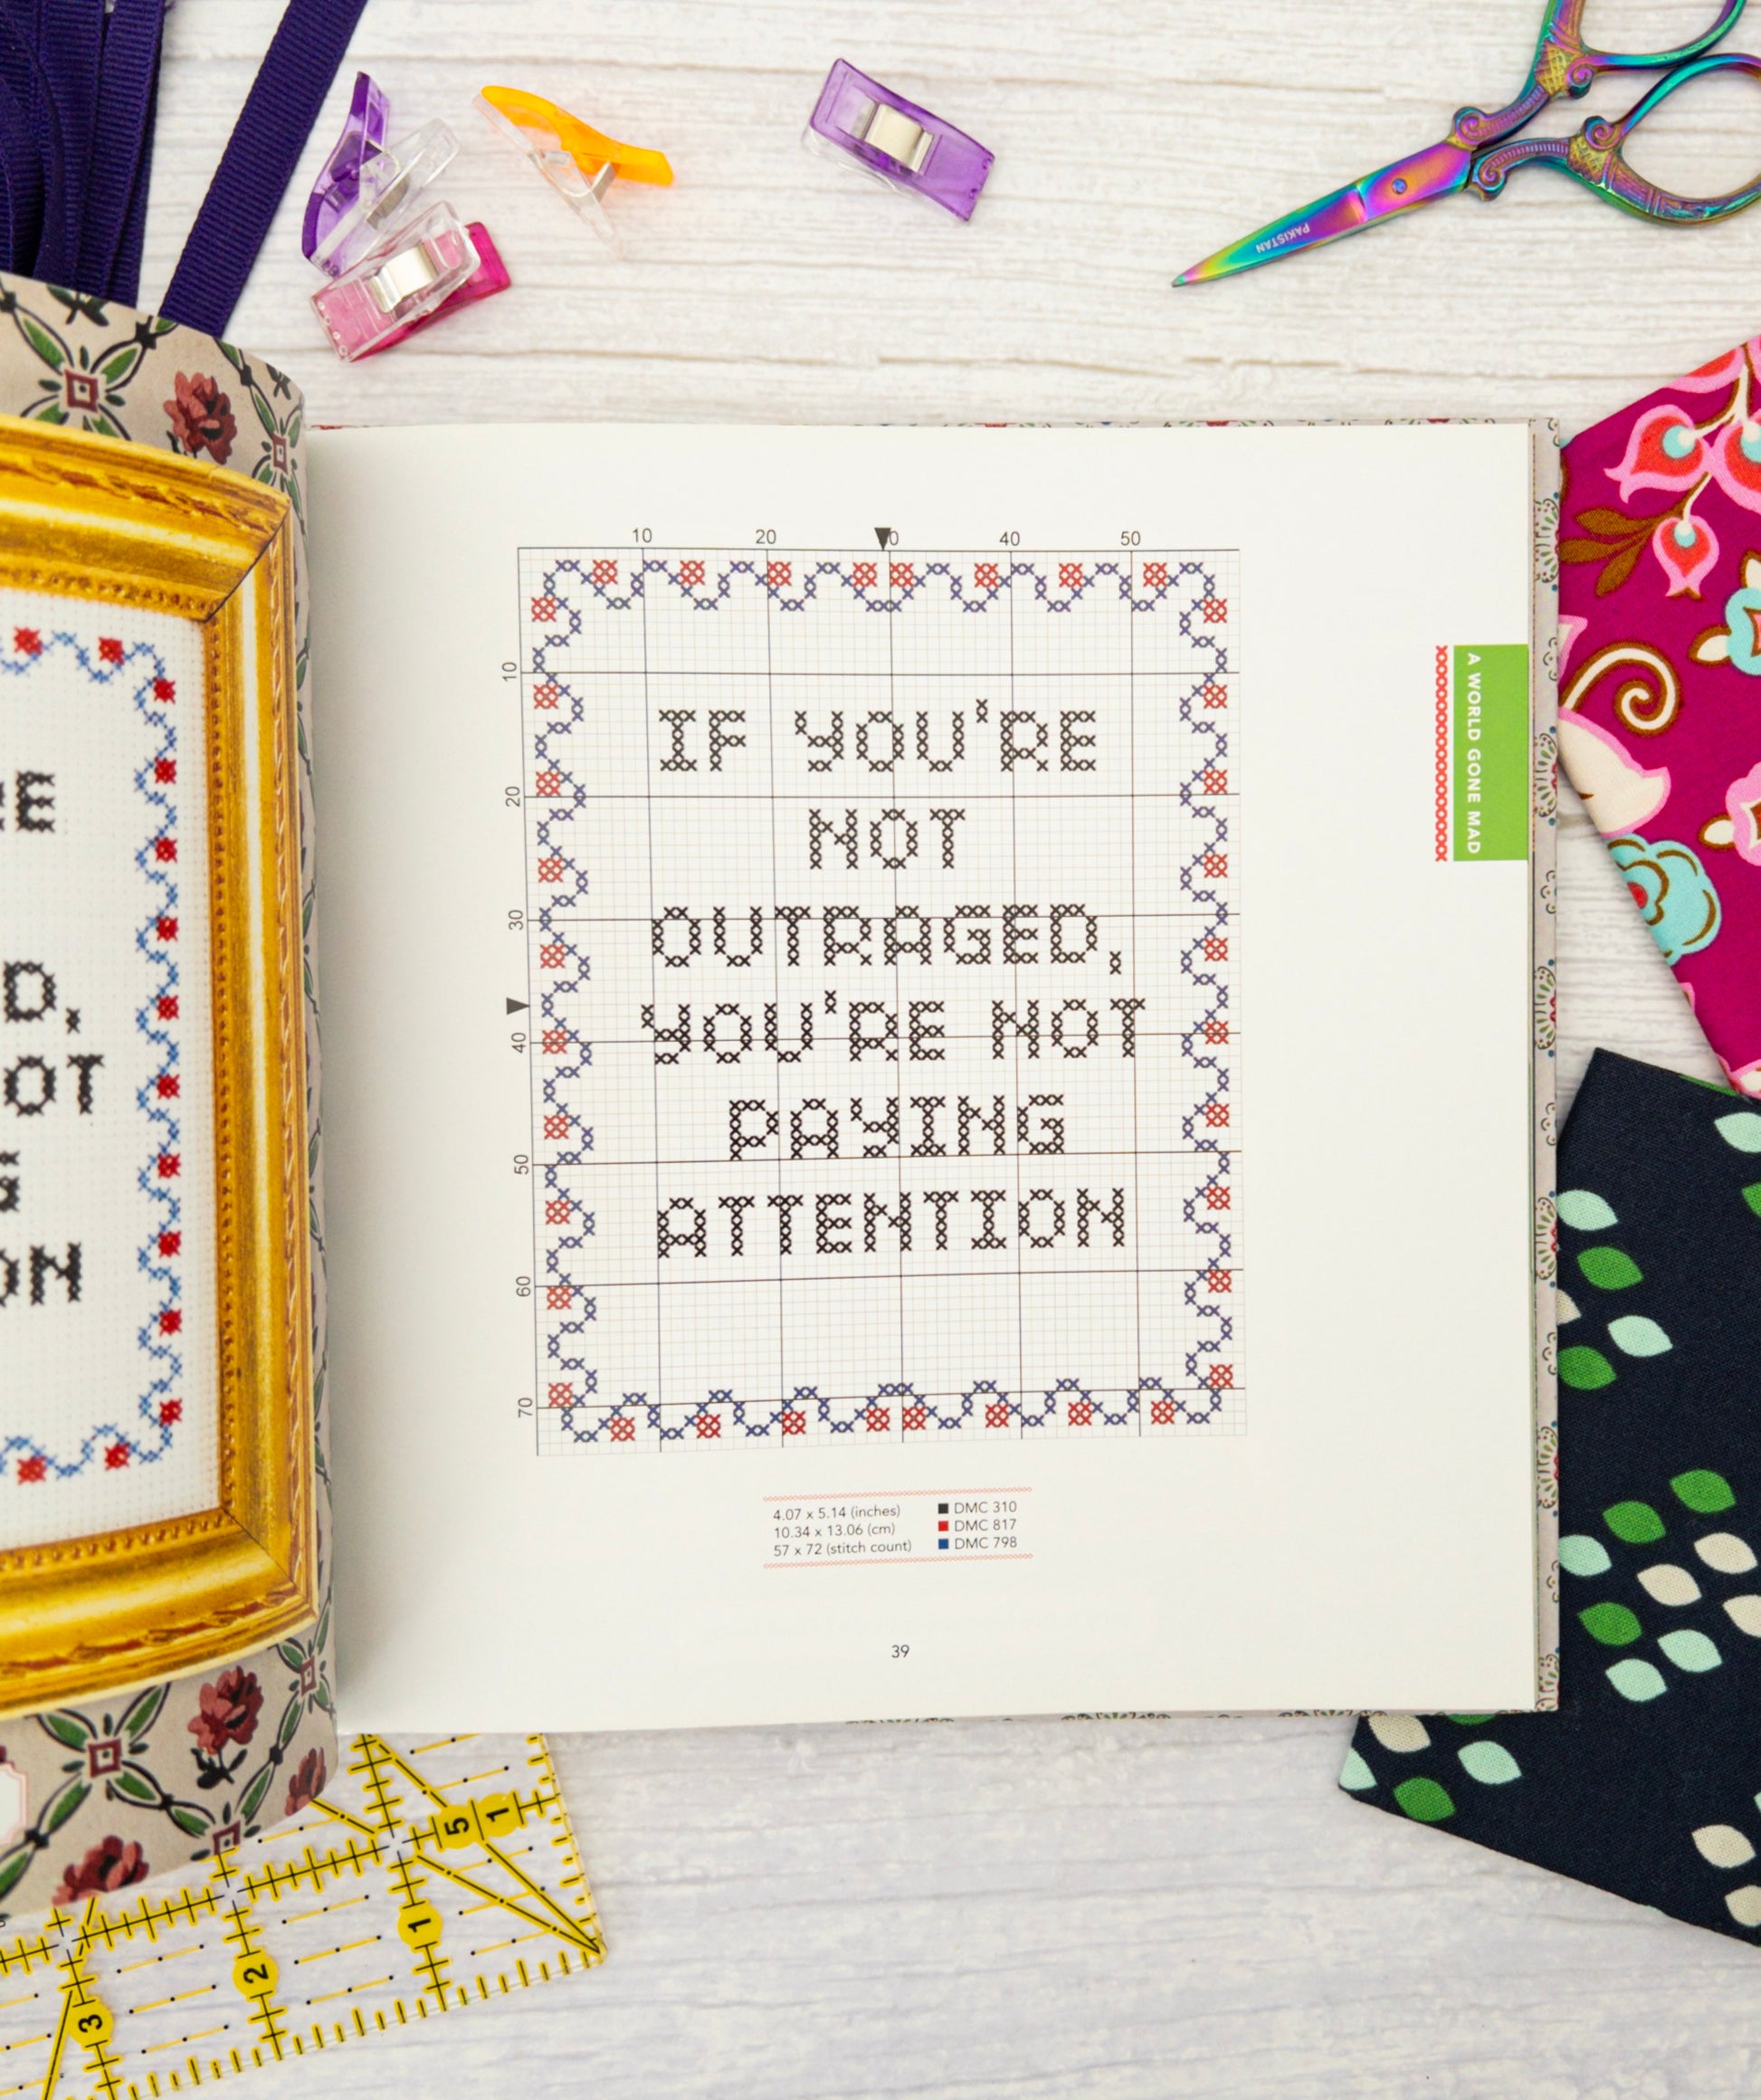 PAKISTAN
10 20 30 40 50
10
20
30
40
50
60
70
IF YOU'RE
NOT
OUTRAGED,
YOU'RE NOT
PAYING
ATTENTION
A WORLD GONE MAD
4.07 x 5.14 (inches)
10.34 x 13.06 (cm)
57 x 72 (stitch count)
DMC 310
DMC 817
DMC 798
39
E
D,
OT
ON
5 1
1
2
3